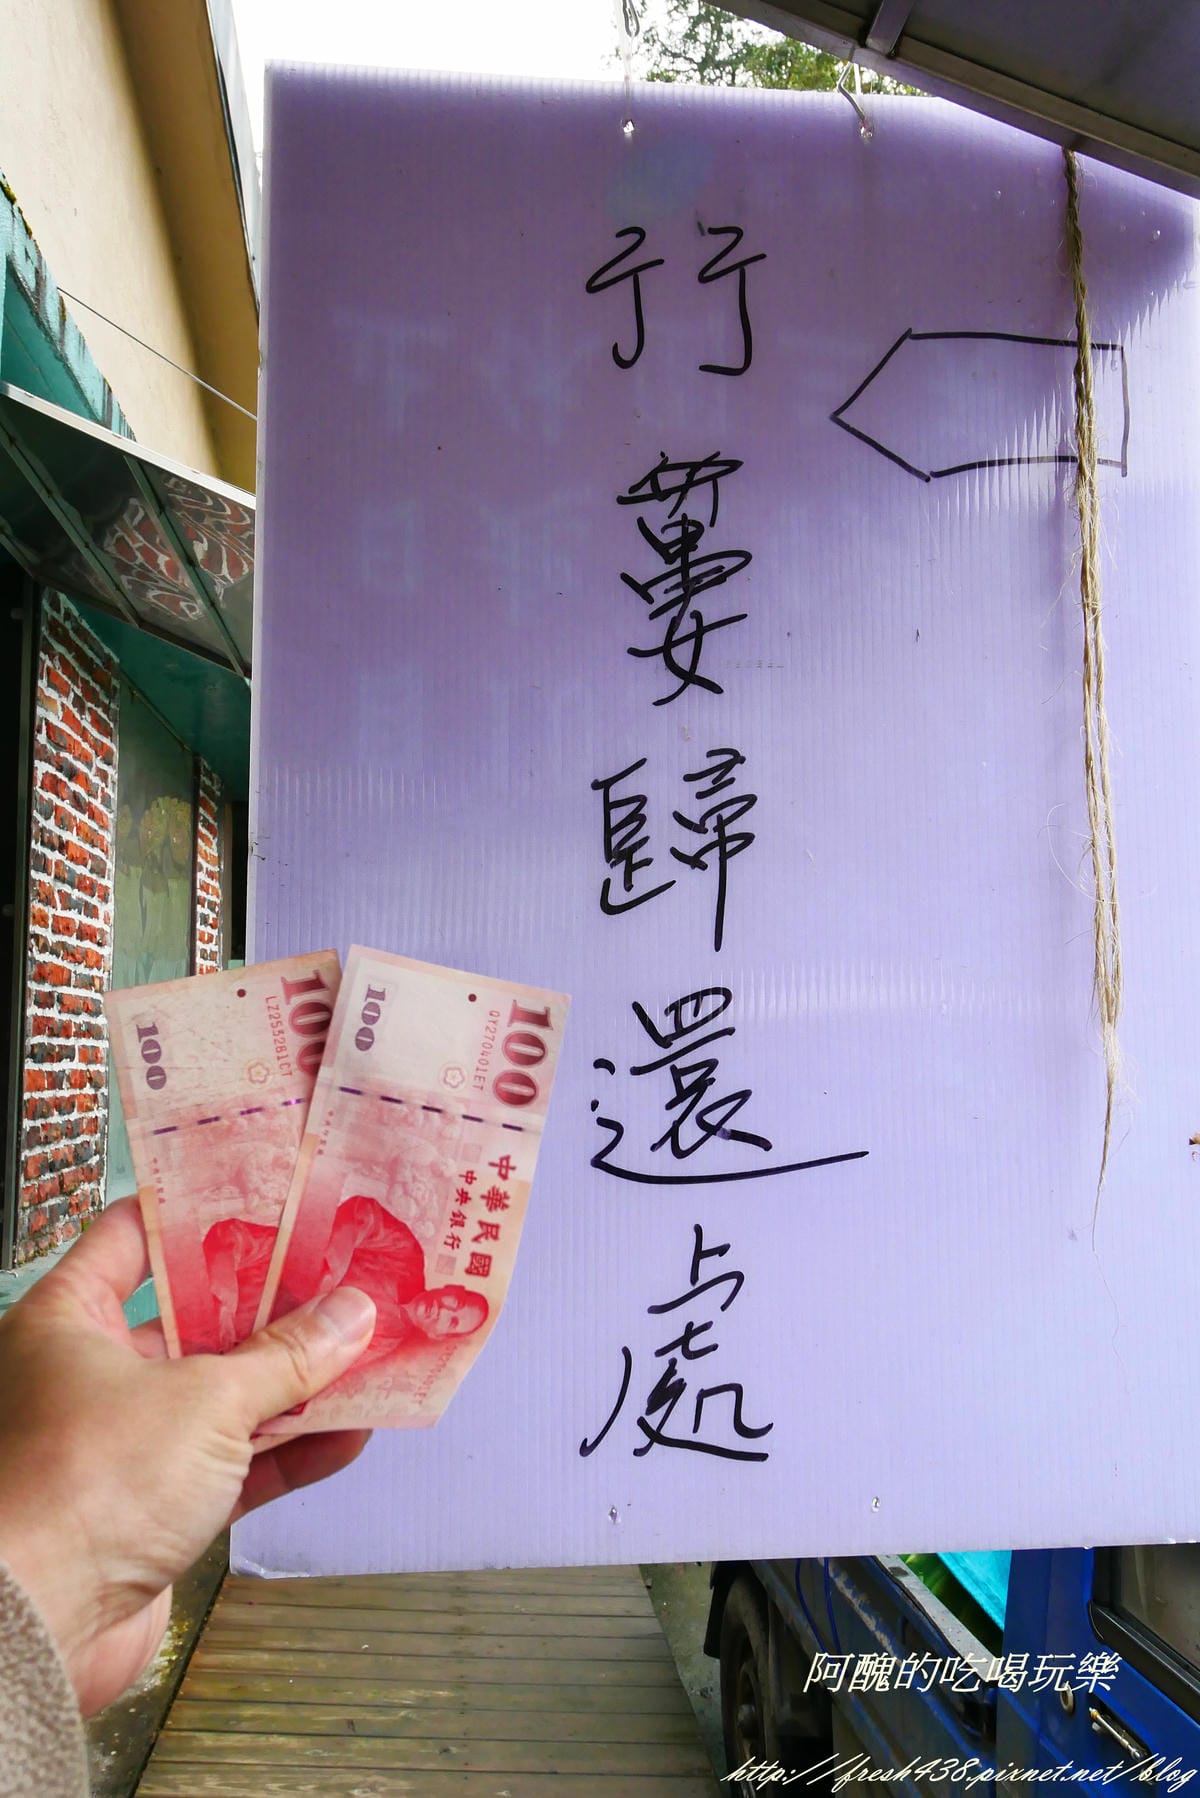 行蔞歸還處
100
100
100
QY270401ET
100
中華民國
中央銀行
阿醜的吃喝玩樂
http://fresh438.pixnet.net/blog